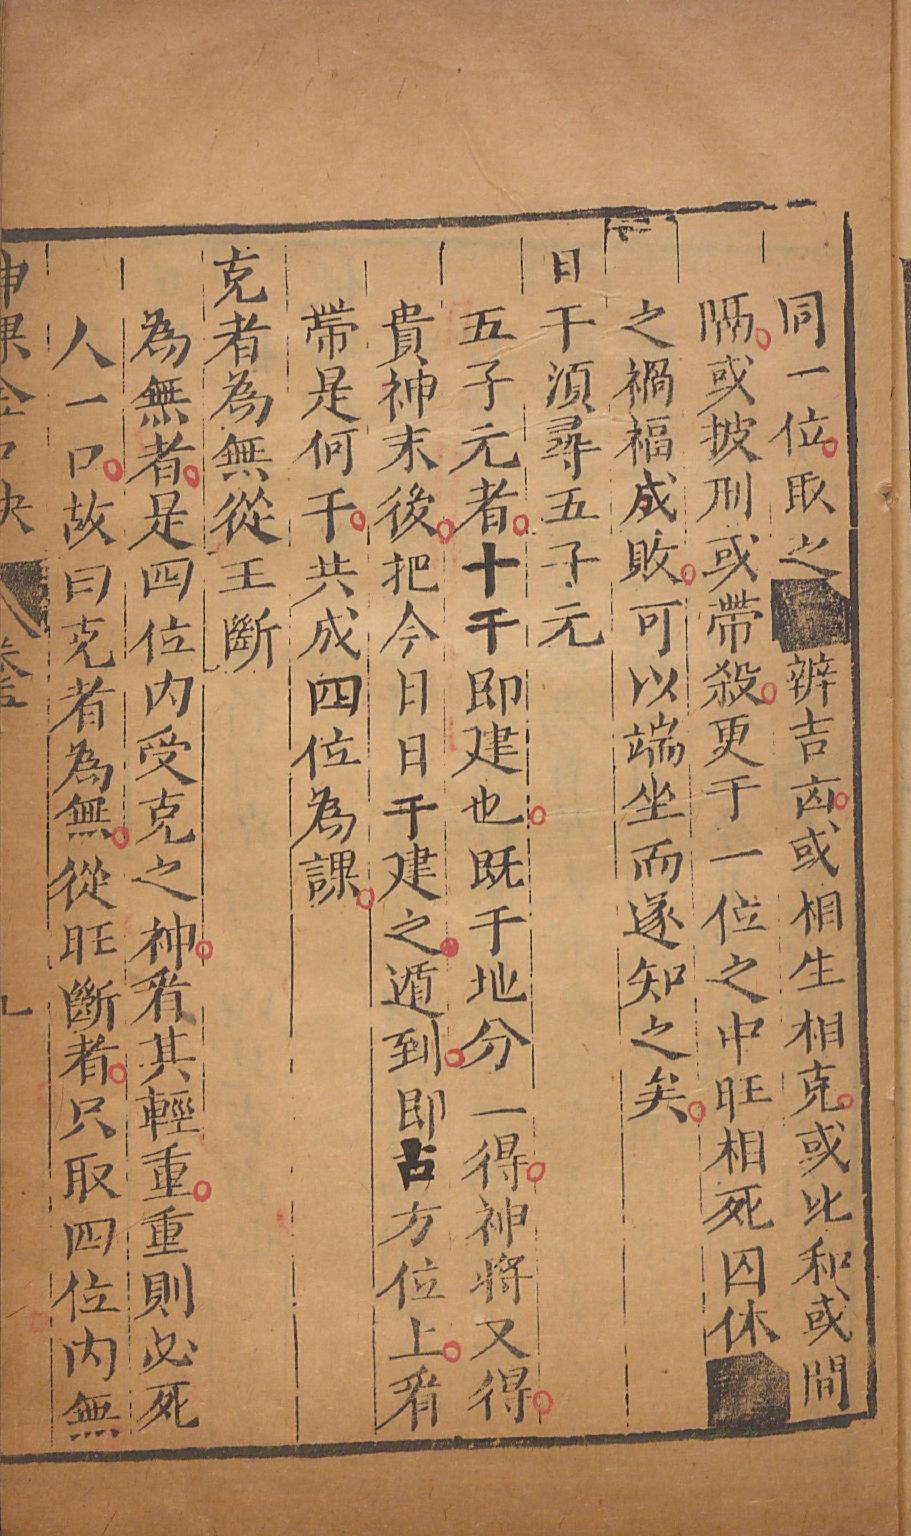 同一位取之辨吉凶或相生相克或比和或間
隔或披刑或帶殺更于一位之中旺相死囚休
之禍福成敗可以端坐而遂知之矣
日干須尋五子元
五子元者十干即建也既于地分一得神將又得
貴神末後把今日日干建之遁到即占方位上看
帶是何干共成四位為課
克者為無從王斷
為無者是四位内受克之神看其輕重重則必死
人一口故曰克者為無從旺斷者只取四位内無
神課金口訣 卷五 九